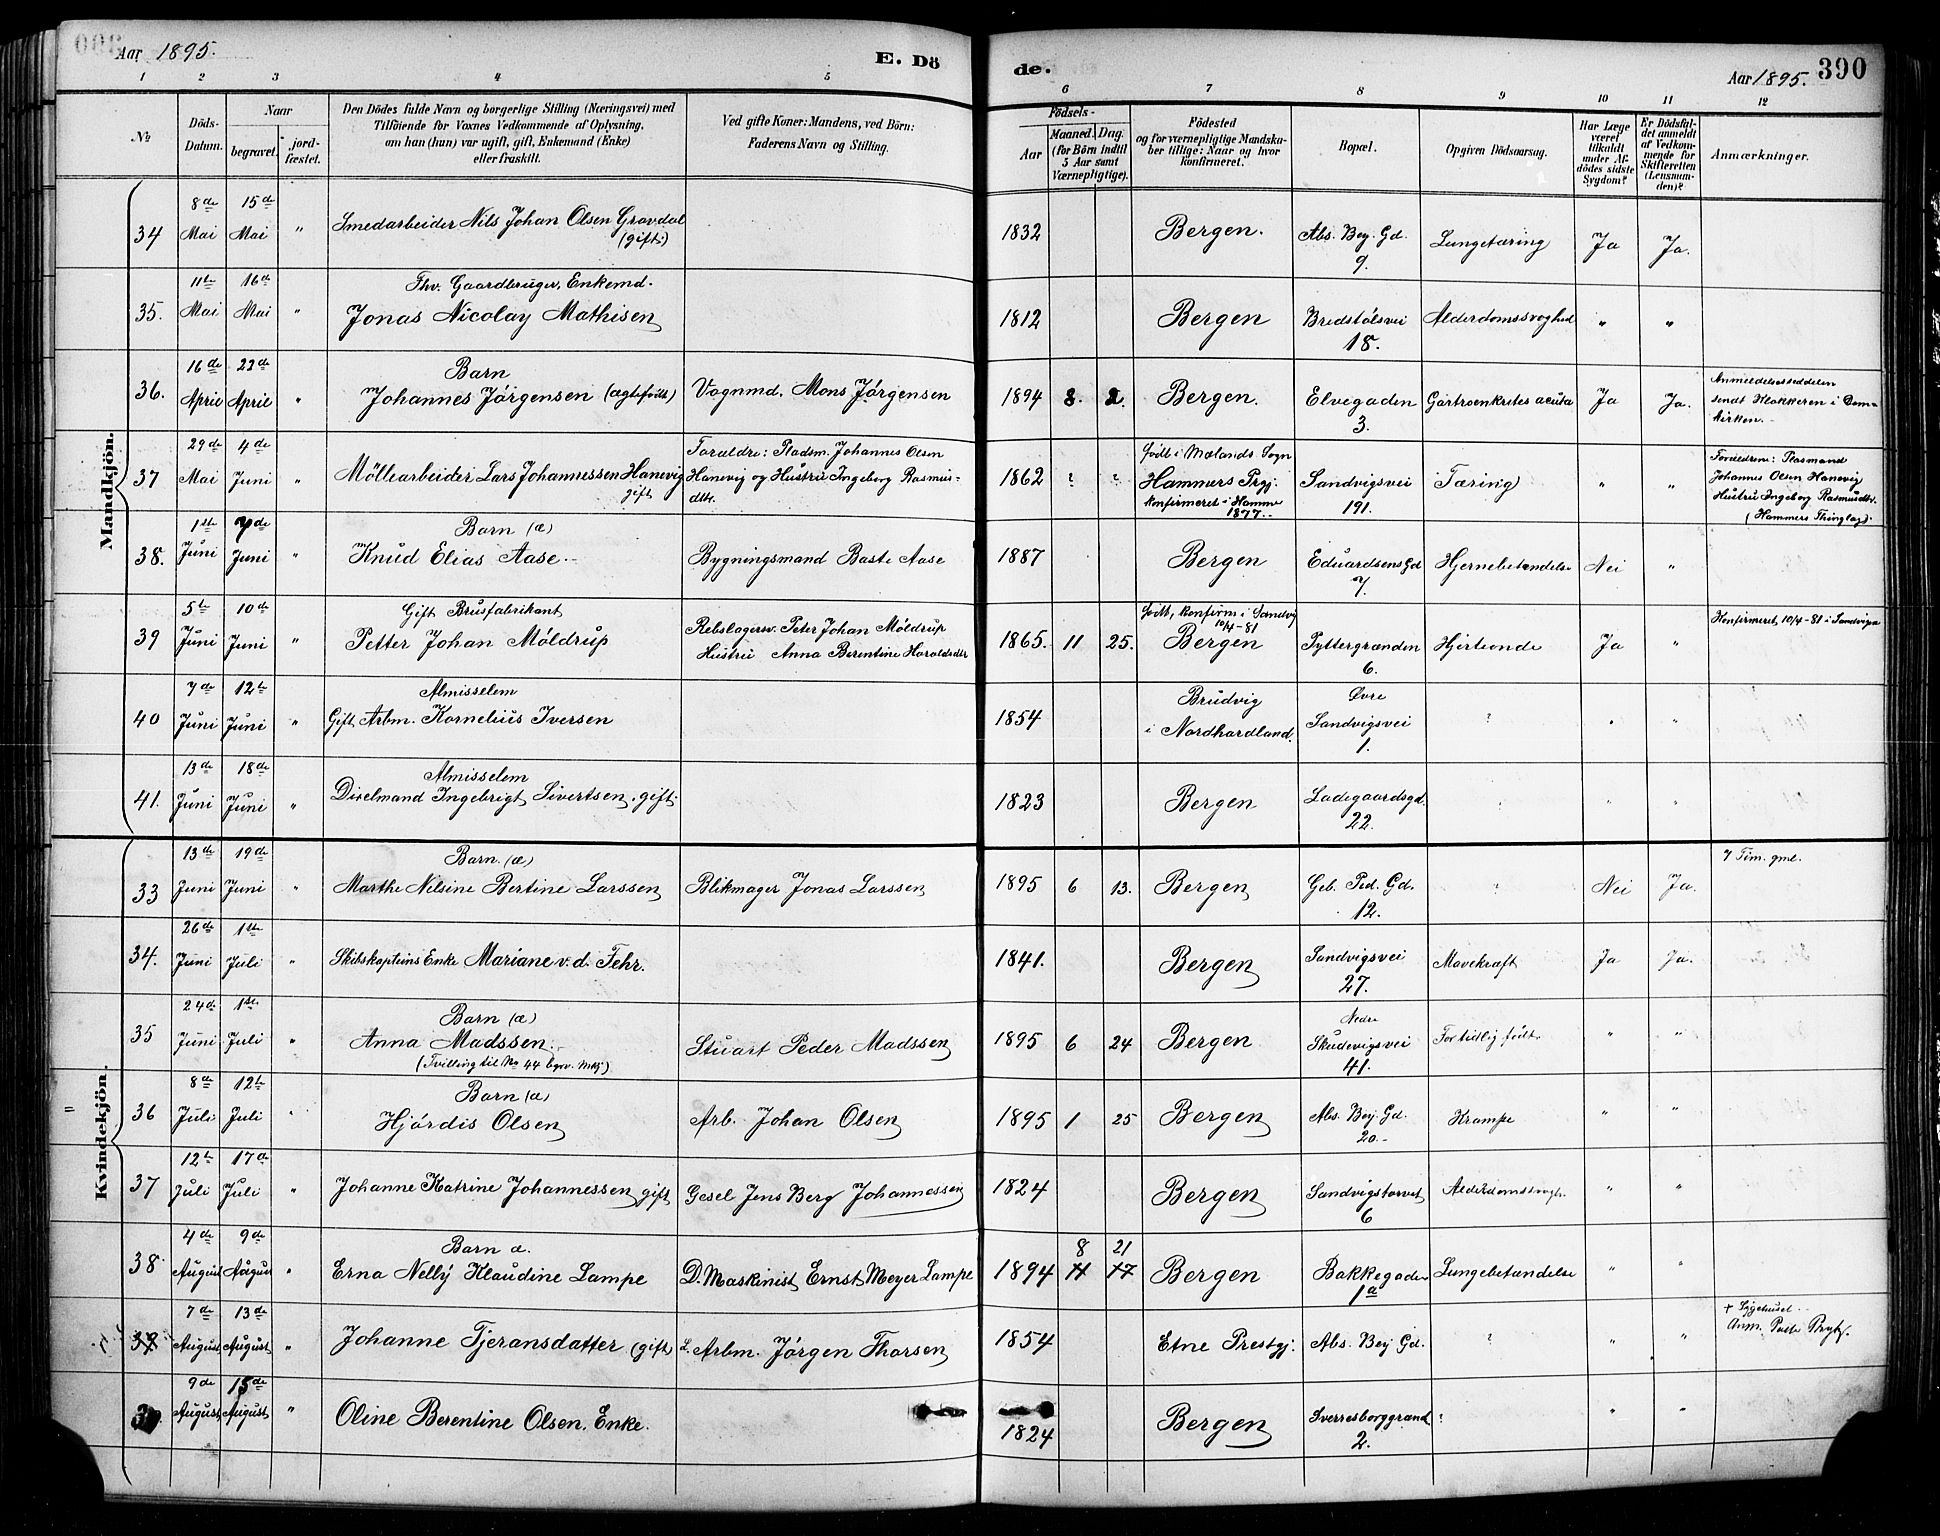 Aar 1895.
E. Dö
de.
Aar 1895.
390
1 2 3 4 5 6 7 8 9 10 11 12
No
Döds-
Datum.
Naar
begravet.
jord-
fæstet.
Den Dödes fulde Navn og borgerlige Stilling (Næringsvei) med
Tilföiende for Voxnes Vedkommende af Oplysning,
om han (hun) var ugift, gift, Enkemand (Enke)
eller fraskilt.
Ved gifte Koner: Mandens, ved Börn:
Faderens Navn og Stilling.
Födsels-
Aar
Maaned. Dag.
(for Börn indtil
5 Aar samt
Værnepligtige).
Födested
og for værnepligtige Mandska-
ber tillige: Naar og hvor
konfirmeret.
Bopæl.
Opgiven Dödsaarsag.
Har Læge
været
tilkaldt
under Af-
dödes sidste
Sygdom?
Er Dödsfal-
det anmeldt
af Vedkom-
mende for
Skifteretten
(Lensman-
den)?
Anmærkninger.
Mandkjön.
34 8de Mai 15de Mai " Smedarbeider Nils Johan Olsen Gravdal (gift) 1832 Bergen. Abs. Bey. Gd. 9. Lungetæring Ja Ja.
35. 11te Mai 16de Mai " Fhv. Gaardbruger, Enkemd. Jonas Nicolay Mathisen 1812 Bergen Bredstølsvei 18. Alderdomssvaghed " "
36. 16de April 22de April " Barn Johannes Jörgensen (ægtefödt) Vognmd. Mons Jörgensen 1894 8. 2. Bergen. Elvegaden 3. Gastroenkrites acuta Ja Ja. Anmeldelsesseddelen sendt Klokkeren i Dom-kirken.
37 29de Mai 4de Juni " Möllearbeider Lars Johannessen Hanevig gift Forældre: Pladsm. Johannes Olsen Hanevig og Hustru Ingeborg Rasmus-dtr. 1862 ? ? född i Mælands Sogn Hammers Prgj. konfirmeret i Hammer 1877. Sandvigsvei 191. Tæring " " Forældrene: Plasmand Johannes Olsen Hanevig Hustru Ingeborg Rasmusdtr. (Hammers Thinglag).
38. 1ste Juni 7de Juni " Barn (æ) Knud Elias Aase Bygningsmand Baste Aase 1887 Bergen Eduardsens Gd 7. Hjernebetændelse Nei "
39 5te Juni 10de Juni " Gift Brusfabrikant Petter Johan Möldrup Rebslagersv. Peter Johan Möldrup Hustru Anna Berentine Haraldsdtr 1865. 11 25. födt, konfirm i Sandvig 10/4-81 Bergen Pyttergrænden 6. Hjerteonde Ja " Konfirmeret, 10/4-81 i Sandviga
40 7de Juni 12te Juni " Almisselem Gift Arbm. Kornelius Iversen 1854 Brudvig i Nordhordland. Øvre Sandvigsvei 1. ? " "
41. 13de Juni 18de Juni " Almisselem Dixelmand Ingebrigt Sivertsen, gift. 1823 Bergen Ladegaardsgd. 22. " " "
Kvindekjön.
33 13de Juni 19de Juni " Barn. (æ) Marthe Nelsine Bertine Larssen Blikmager Jonas Larssen 1895 6 13. Bergen Geb. Ped. Gd. 12. " Nei Ja. 7 Tim. gml.
34. 26de Juni 1ste Juli " Skibskapteins Enke Mariane v. d. Fehr. 1841. Bergen Sandvigsvei 27. Mavekræft Ja Ja.
35 24de Juni 1ste Juli " Barn (æ) Anna Madssen. (Tvilling til No 44 begrv. Mkj) Stuart Peder Madssen 1895 6 24 Bergen Nedre Skudevigsvei 41. For tidlig födt. " "
36 8de Juli 12te Juli " Barn (æ) Hjördis Olsen Arb. Johan Olsen 1895 1 25 Bergen Abs. Bey. Gd. 20. Krampe " "
37 12te Juli 17de Juli " Johanne Katrine Johannessen gift Gesel Jens Berg Johannessen 1824 Bergen Sandvigstorvet 6 Alderdomssvagh. " "
38 4de August 9de August " Barn æ. Erna Nelly Klaudine Lampe D. Maskinist Ernst Meyer Lampe 1894 8 11 21 17 Bergen Bakkegaden 1a Lungebetændelse " "
39 7de August 13de August " Johanne Tjeransdatter (gift) L. Arbm. Jörgen Thorsen 1854 Etne Prestgj. Abs. Bey Gd. ? " " + Sygehuset. Anm.
9de August 15de August " Oline Berentine Olsen, Enke. 1824 Bergen Sverresborggrand 2. ? " "